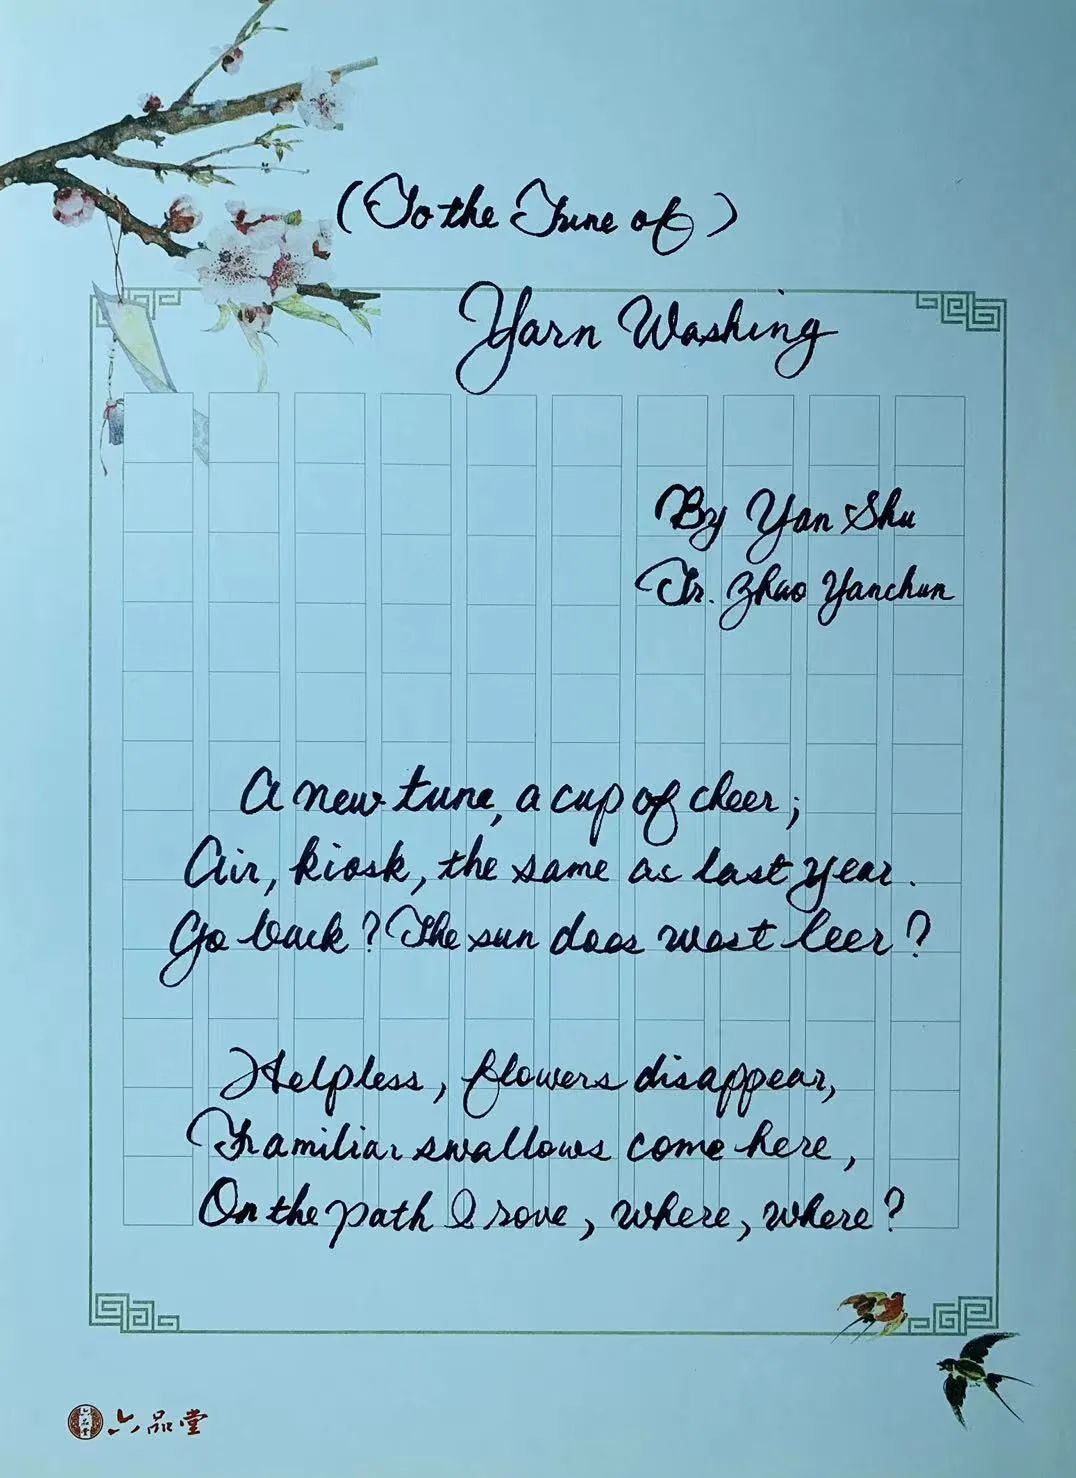 (To the Tune of)
Yarn Washing
By Yan Shu
Tr. Zhao Yanchun
A new tune, a cup of cheer;
Air, kiosk, the same as last year.
Go back? The sun does west leer?
Helpless, flowers disappear,
Familiar swallows come here,
On the path I rove, where, where?
六品堂